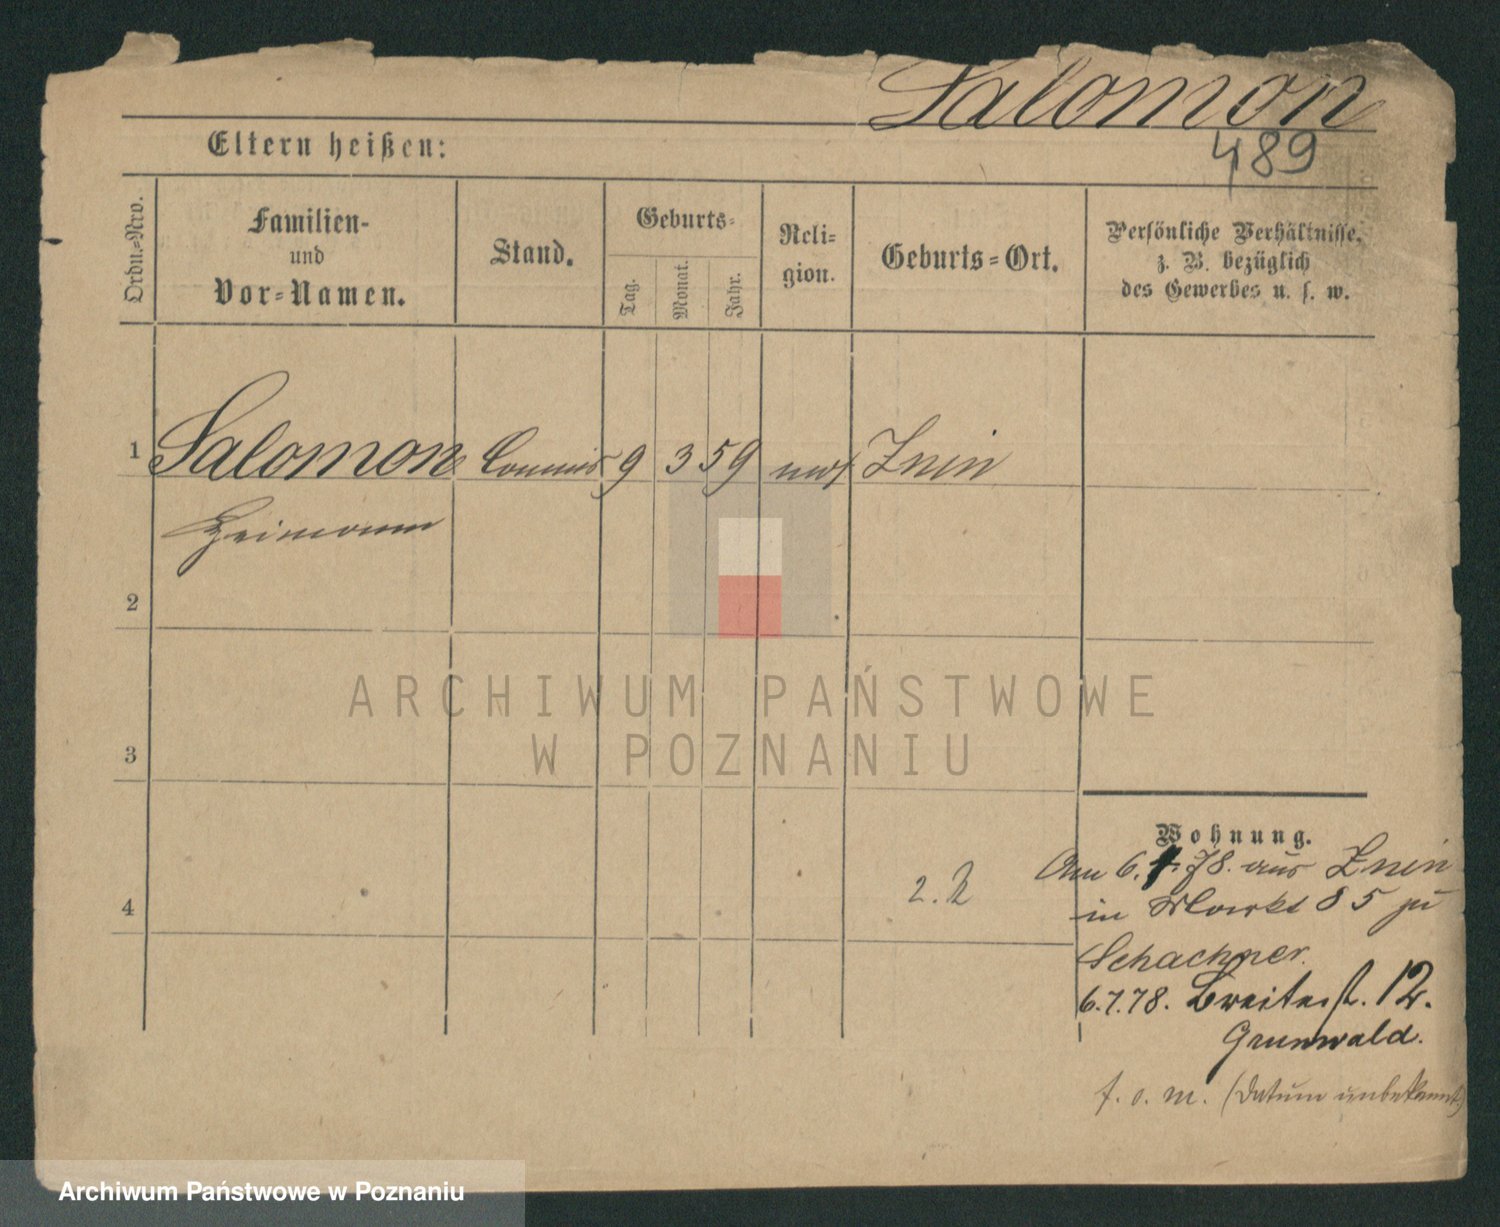 Salomon
489
Eltern heißen:
Ordn.-Nro.
Familien-
und
Vor-Namen.
Stand.
Geburts-
Tag.
Monat.
Jahr.
Reli-
gion.
Geburts-Ort.
Persönliche Verhältnisse,
z. B. bezüglich
des Gewerbes u. s. w.
1 Salomon Commis 9 3 59 Znin
Heimann
2
3
4
2. Z
Wohnung.
Am 6. 1. 78. aus Znin
in Markt 85 zu
Schachner.
6.7.78. Breitestr. 12.
Grunwald.
f. o. m. (Datum unbekannt)
ARCHIWUM PAŃSTWOWE
W POZNANIU
Archiwum Państwowe w Poznaniu